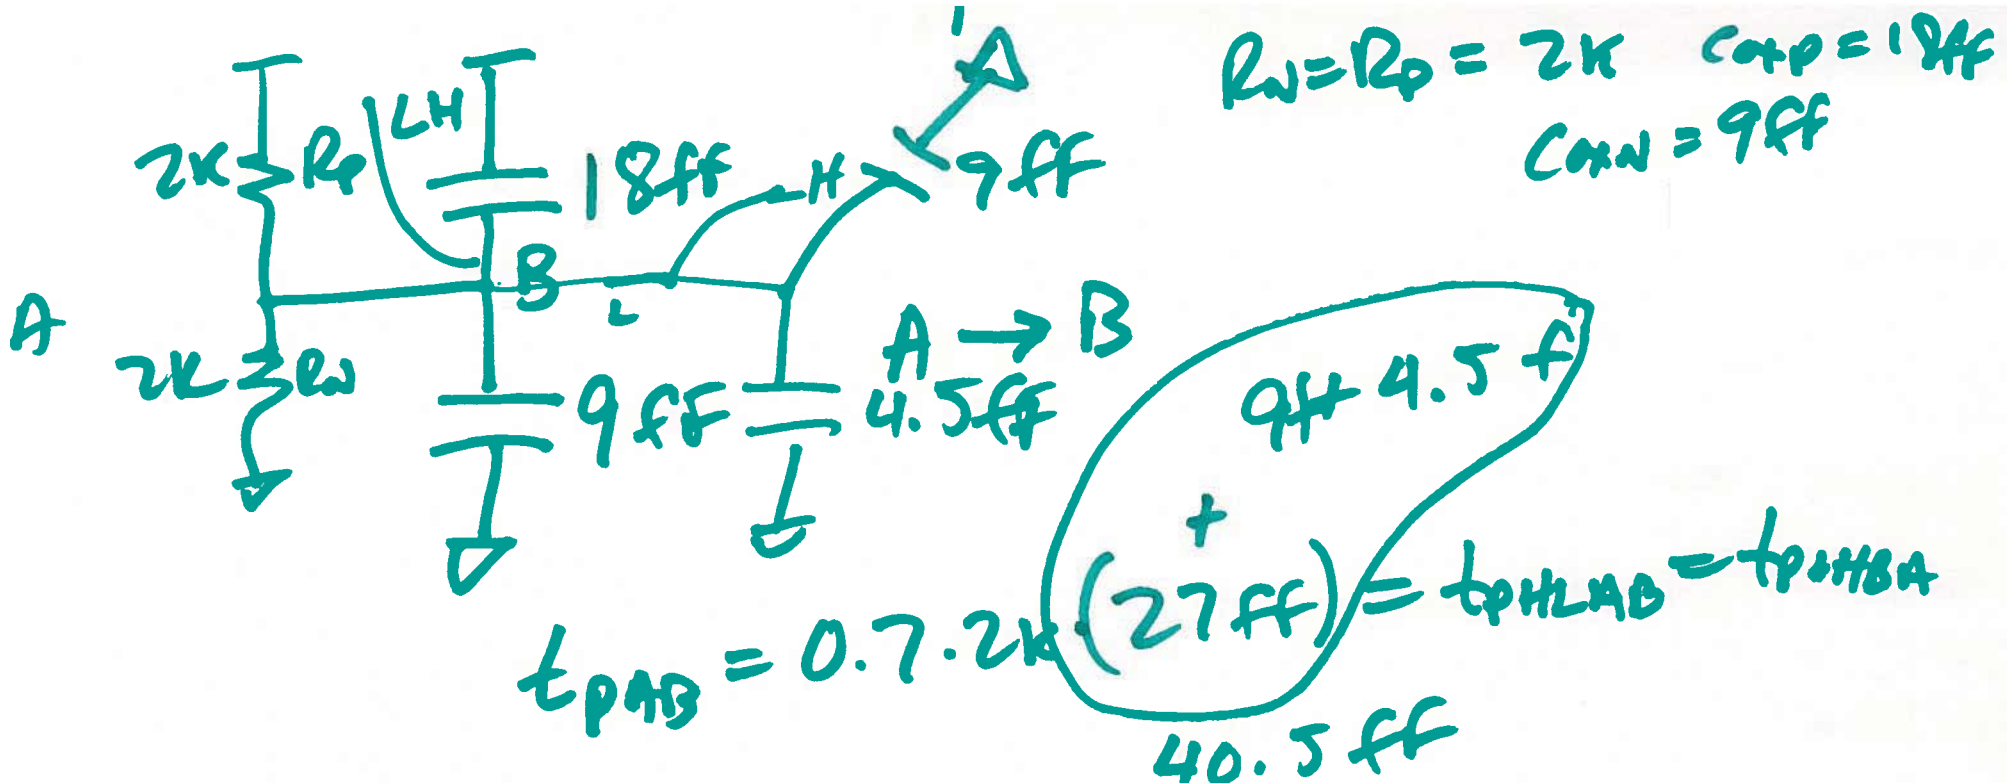 RN=RP = 2K Coxp = 18ff
CoxN = 9ff
LH
2K RP
18ff
H
9ff
B
L
A
A → B
2K RN
9ff
4.5ff
9f+ 4.5 f
+
tPAB = 0.7.2K.(27ff) = tPHLAB = tPLHBA
40.5 ff